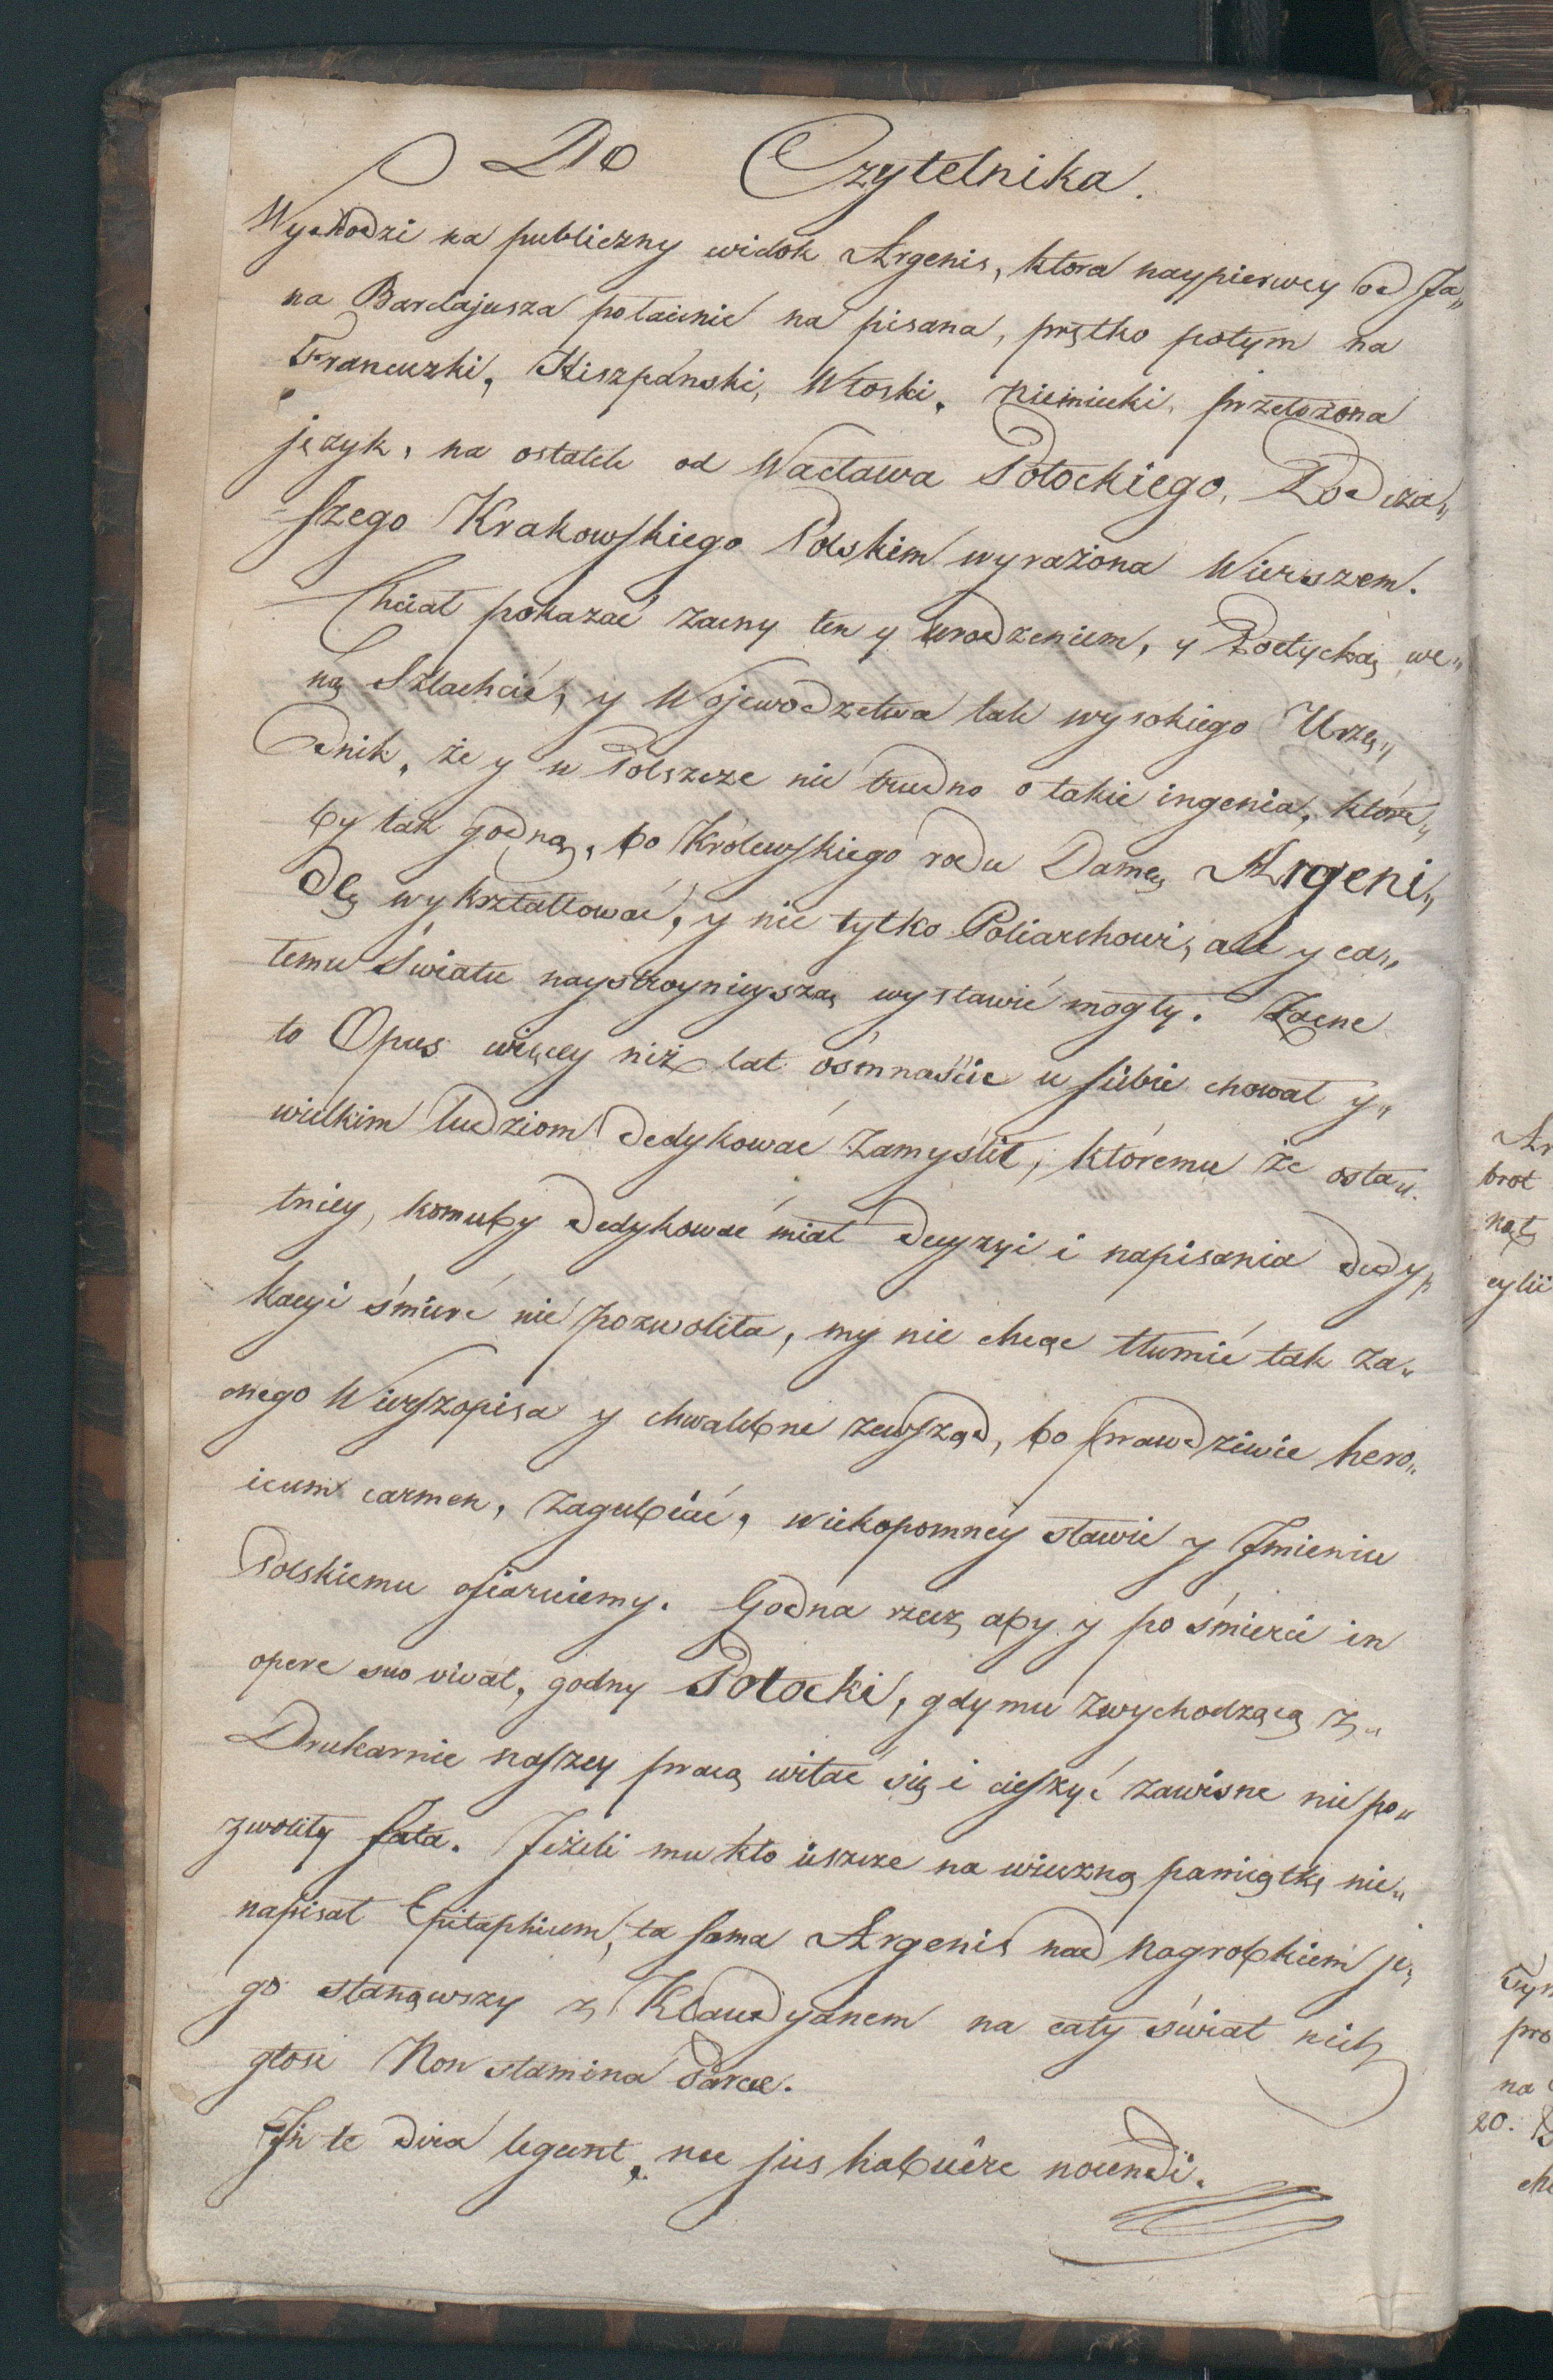 Do Czytelnika.
Wychodzi na publiczny widok Argenis, ktora naypierwey od Ja„
na Barclajusza połacinie na pisana, prętko potym na
Francuzki, Hiszpánski, Włoski, Niemiecki, przełożona
język, na ostatek od Wacława Potockiego, Podcza„
szego Krakowskiego Polskim wyrażona Wierszem.
Chciał pokazać zacny ten y urodzeniem, y Poetycką we„
ną Szlachcic, y Wojewodzctwa tak wysokiego Urzę„
dnik, że y w Polszcze nie trudno o takie ingenia, które„
by tak godną, bo Królewskiego rodu Damę Argeni„
dę wykształtować, y nie tylko Poliarchowi, ale y ca„
łemu Światu naystroynieyszą wystawić mogły. Zacne
to Opus więcey niż lat ośmnaście u siebie chował y„
wielkim ludziom dedykować zamyślił, któremu że osta„
tniey, komuby dedykować miał decyzyi i napisania dedy„
kacyi śmierć nie pozwoliła, my nie chcąc tłumić tak za„
cnego Wierszopisa y chwalebne zewsząd, bo prawdziwie hero„
icum carmen, zagubiać, wiekopomney sławie y Imieniu
Polskiemu ofiaruiemy. Godna rzecz aby y po śmierci in
opere suo vivat, godny Potocki, gdy mu zwychodzącą z„
Drukarnie naszey pracą witać się i cieszyć zawisne niepo„
zwoliły fata. Jeżeli mu kto ieszcze na wieczną pamiątkę nie„
napisał Epitaphium, ta sama Argenis nad Nagrobkiem je„
go stanąwszy z Klaudyanem na cały świat niech
głosi Non stamina Parcae.
In te dira legunt, nec jus habuêre nocendi.
Ar
brot
nąt
cylii
Tym
pro
na
20.
che